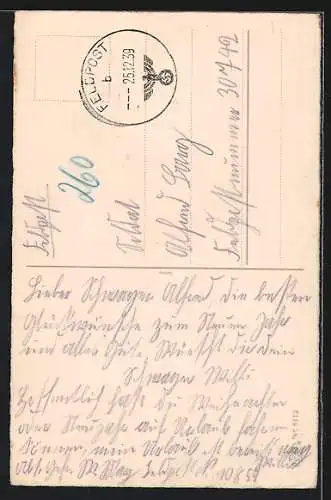 FELDPOST
b
--- 26.12.39
Feldpost
260
Soldat
Alfred
Feldpostnummer 30742
Lieber Schwager Alfred, die besten
Glückwünsche zum Neuen Jahr
und alles Gute. Wünscht dir dein
Schwager Willi
Hoffentlich hast du Weihnachten
oder Neujahr auf Urlaub fahren
können, mein Urlaub ist
Abs. Feldpost N. 10854